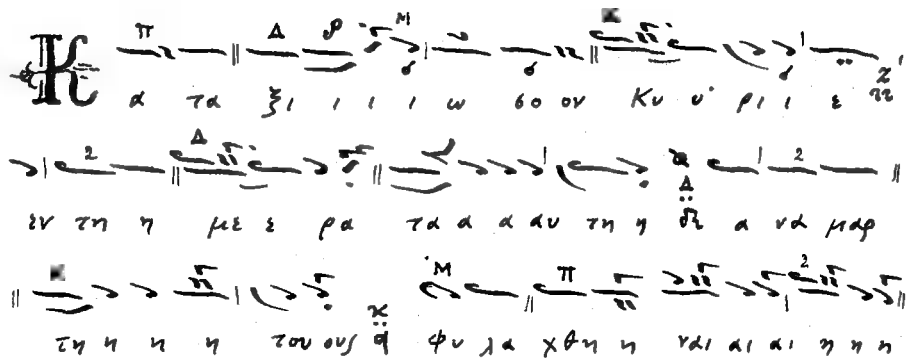 Κ α τα ξι ι ι ι ω σο ον Κυ υ ρι ι ε
εν τη η με ε ρα τα α α αυ τη η α να μαρ
τη η η η του ους φυ λα χθη η ναι αι αι η η η